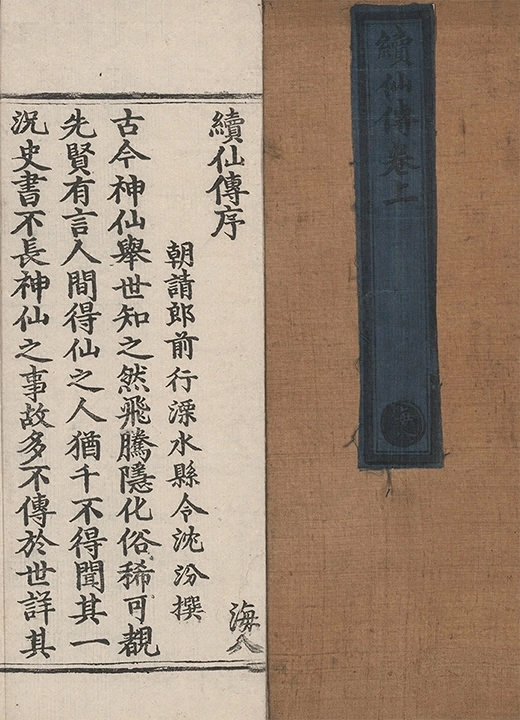 續仙傳卷上
續仙傳序
海八
朝請郎前行溧水縣令沈汾撰
古今神仙舉世知之然飛騰隱化俗稀可覩
先賢有言人間得仙之人猶千不得聞其一
況史書不長神仙之事故多不傳於世詳其